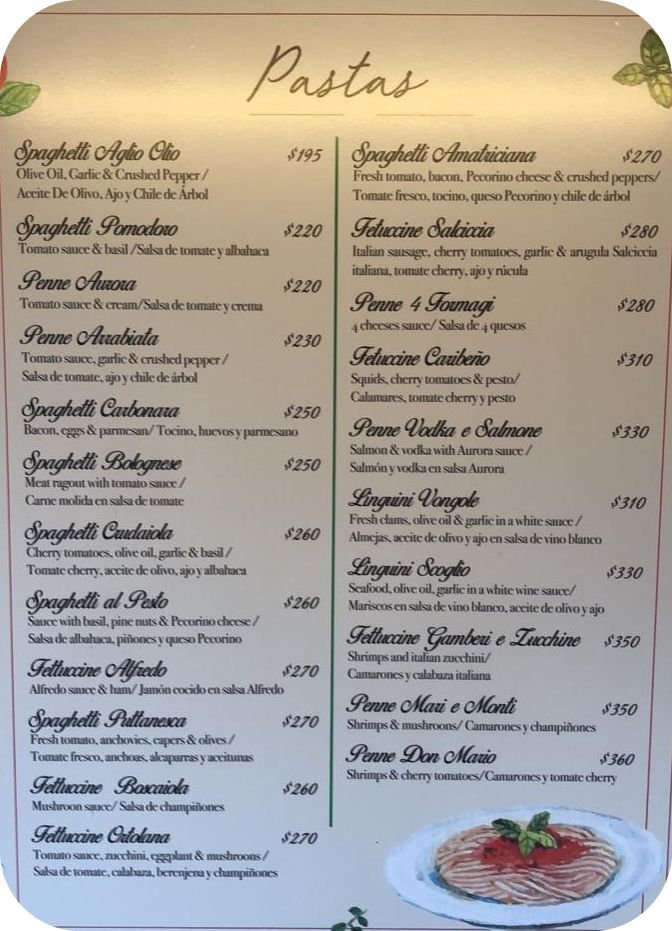 Pastas
Spaghetti Aglio Olio $195
Olive Oil, Garlic & Crushed Pepper /
Aceite De Olivo, Ajo y Chile de Árbol
Spaghetti Pomodoro $220
Tomato sauce & basil /Salsa de tomate y albahaca
Penne Aurora $220
Tomato sauce & cream/Salsa de tomate y crema
Penne Arrabiata $230
Tomato sauce, garlic & crushed pepper /
Salsa de tomate, ajo y chile de árbol
Spaghetti Carbonara $250
Bacon, eggs & parmesan/ Tocino, huevos y parmesano
Spaghetti Bolognese $250
Meat ragout with tomato sauce /
Carne molida en salsa de tomate
Spaghetti Crudaiola $260
Cherry tomatoes, olive oil, garlic & basil /
Tomate cherry, aceite de olivo, ajo y albahaca
Spaghetti al Pesto $260
Sauce with basil, pine nuts & Pecorino cheese /
Salsa de albahaca, piñones y queso Pecorino
Fettuccine Alfredo $270
Alfredo sauce & ham/ Jamón cocido en salsa Alfredo
Spaghetti Puttanesca $270
Fresh tomato, anchovies, capers & olives /
Tomate fresco, anchoas, alcaparras y aceitunas
Fettuccine Boscaiola $260
Mushroom sauce/ Salsa de champiñones
Fettuccine Ortolana $270
Tomato sauce, zucchini, eggplant & mushrooms /
Salsa de tomate, calabaza, berenjena y champiñones
Spaghetti Amatriciana $270
Fresh tomato, bacon, Pecorino cheese & crushed peppers/
Tomate fresco, tocino, queso Pecorino y chile de árbol
Fetuccine Salciccia $280
Italian sausage, cherry tomatoes, garlic & arugula Salciccia
italiana, tomate cherry, ajo y rúcula
Penne 4 Formagi $280
4 cheeses sauce/ Salsa de 4 quesos
Fetuccine Caribeño $310
Squids, cherry tomatoes & pesto/
Calamares, tomate cherry y pesto
Penne Vodka e Salmone $330
Salmon & vodka with Aurora sauce /
Salmón y vodka en salsa Aurora
Linguini Vongole $310
Fresh clams, olive oil & garlic in a white sauce /
Almejas, aceite de olivo y ajo en salsa de vino blanco
Linguini Scoglio $330
Seafood, olive oil, garlic in a white wine sauce/
Mariscos en salsa de vino blanco, aceite de olivo y ajo
Fettuccine Gamberi e Zucchine $350
Shrimps and italian zucchini/
Camarones y calabaza italiana
Penne Mari e Monti $350
Shrimps & mushrooms/ Camarones y champiñones
Penne Don Mario $360
Shrimps & cherry tomatoes/Camarones y tomate cherry